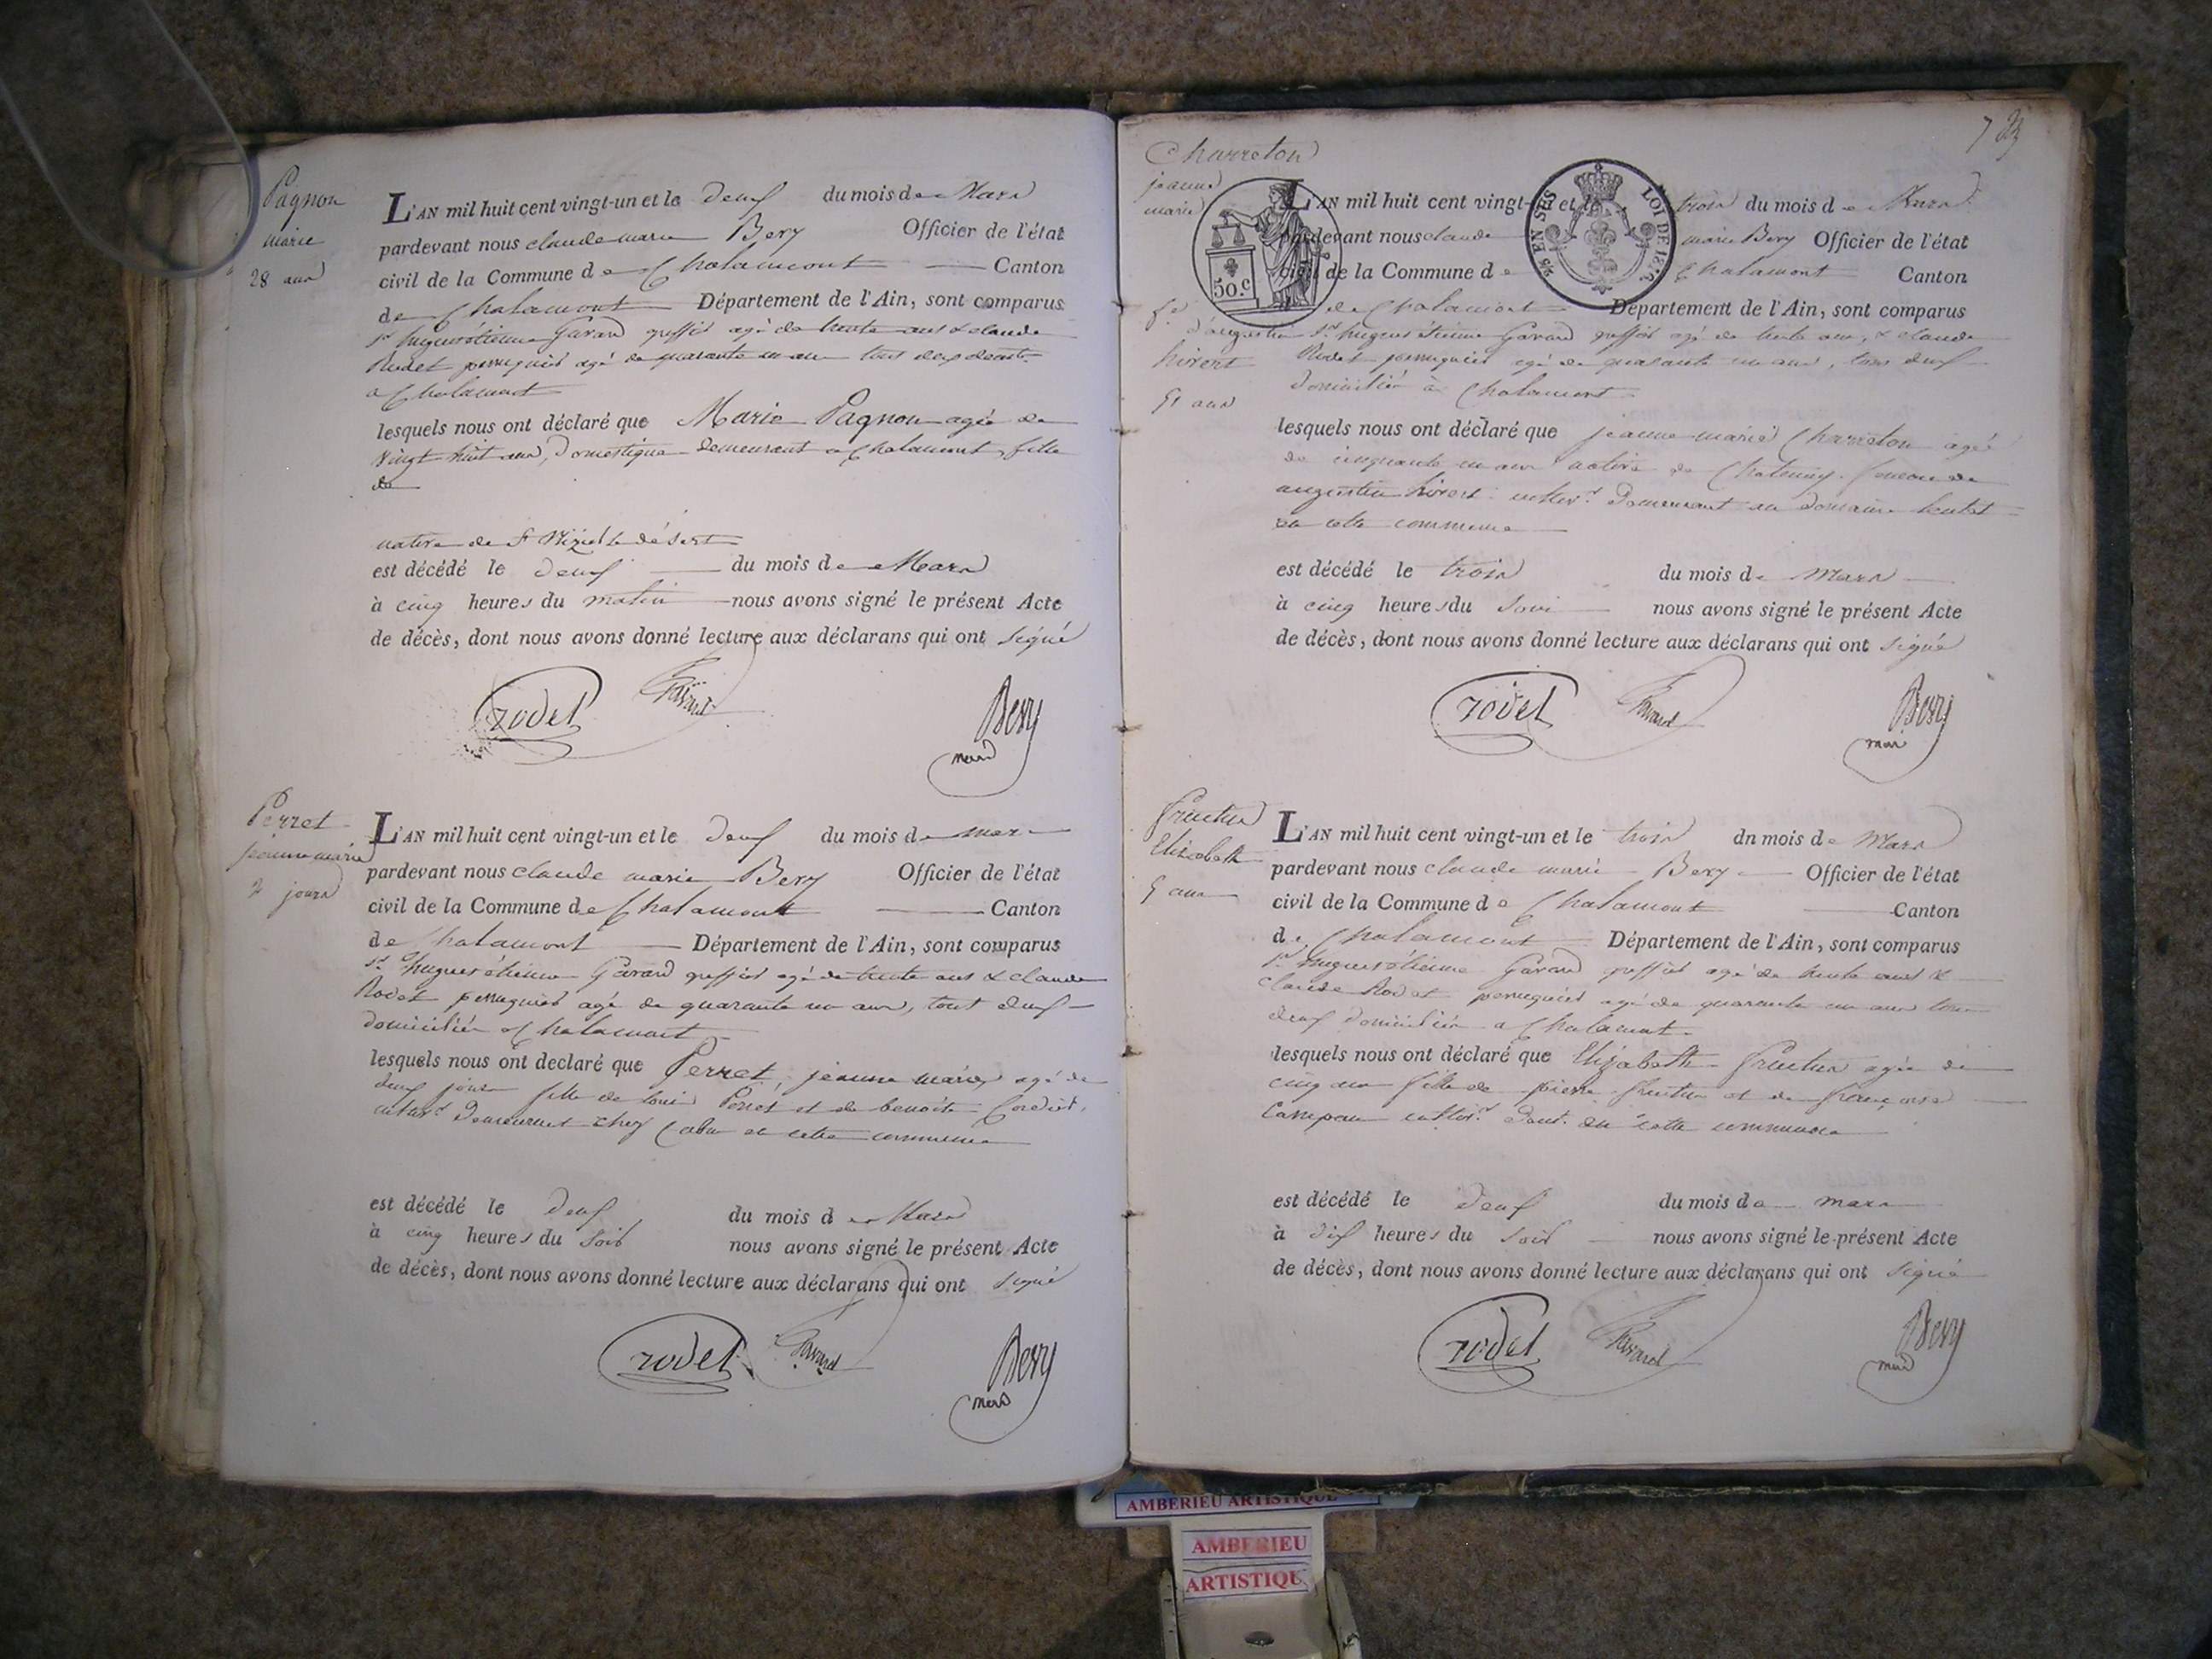 Pagnon
marie
28 ans
L'AN mil huit cent vingt-un et le deux du mois de Mars
pardevant nous claude marie Bery Officier de l'état
civil de la Commune de Chalamont Canton
de Chalamont Département de l'Ain, sont comparus
sr hugues étienne Gavard greffier agé de trente ans & claude
Rodet perruquier agé de quarante un ans tous deux demt
a Chalamont
lesquels nous ont déclaré que Marie Pagnon agée de
vingt huit ans, domestique demeurant a Chalamont, fille
de
native de St Nizier le désert
est décédé le deux du mois de Mars
à cinq heures du matin nous avons signé le présent Acte
de décès, dont nous avons donné lecture aux déclarans qui ont signé
rodet Gavard Bery
maire
Perret
jeanne marie
2 jours
L'AN mil huit cent vingt-un et le deux du mois de mars
pardevant nous claude marie Bery Officier de l'état
civil de la Commune de Chalamont Canton
de Chalamont Département de l'Ain, sont comparus
sr hugues étienne Gavard greffier agé de trente ans & claude
Rodet perruquier agé de quarante un ans, tout deux
domiciliés a Chalamont
lesquels nous ont declaré que Perret, jeanne marie agé de
deux jours fille de louis Perret et de benoite
cultivr demeurant chez en cette commune
est décédé le deux du mois de Mars
à cinq heures du soir nous avons signé le présent Acte
de décès, dont nous avons donné lecture aux déclarans qui ont signé
rodet Gavard Bery
maire
7
Charreton
jeanne
marie
fe
d'augustin
hivert
51 ans
50.c
EN SUS
LOI DE
L'AN mil huit cent vingt-un et le trois du mois de Mars
pardevant nous claude marie Bery Officier de l'état
civil de la Commune de Chalamont Canton
de Chalamont Département de l'Ain, sont comparus
sr hugues étienne Gavard greffier agé de trente ans, & claude
Rodet perruquier agé de quarante un ans, tous deux
domiciliés à Chalamont
lesquels nous ont déclaré que jeanne marie Charreton agé
de cinquante un ans native de femme de
augustin hivert cultivr demeurant au domaine
en cette commune
est décédé le trois du mois de Mars
à cinq heures du soir nous avons signé le présent Acte
de décès, dont nous avons donné lecture aux déclarans qui ont signé
rodet Gavard Bery
maire
Elizabeth
5 ans
L'AN mil huit cent vingt-un et le trois dn mois de Mars
pardevant nous claude marie Bery Officier de l'état
civil de la Commune de Chalamont Canton
de Chalamont Département de l'Ain, sont comparus
sr hugues étienne Gavard greffier agé de trente ans &
claude Rodet perruquier agé de quarante un ans tous
deux domiciliés a Chalamont
lesquels nous ont déclaré que Elizabeth agée de
cinq ans fille de pierre et de françoise
cultivr demt en cette commune
est décédé le deux du mois de mars
à dix heures du soir nous avons signé le présent Acte
de décès, dont nous avons donné lecture aux déclarans qui ont signé
rodet Gavard Bery
maire
AMBERIEU ARTISTIQUE
AMBERIEU
ARTISTIQU